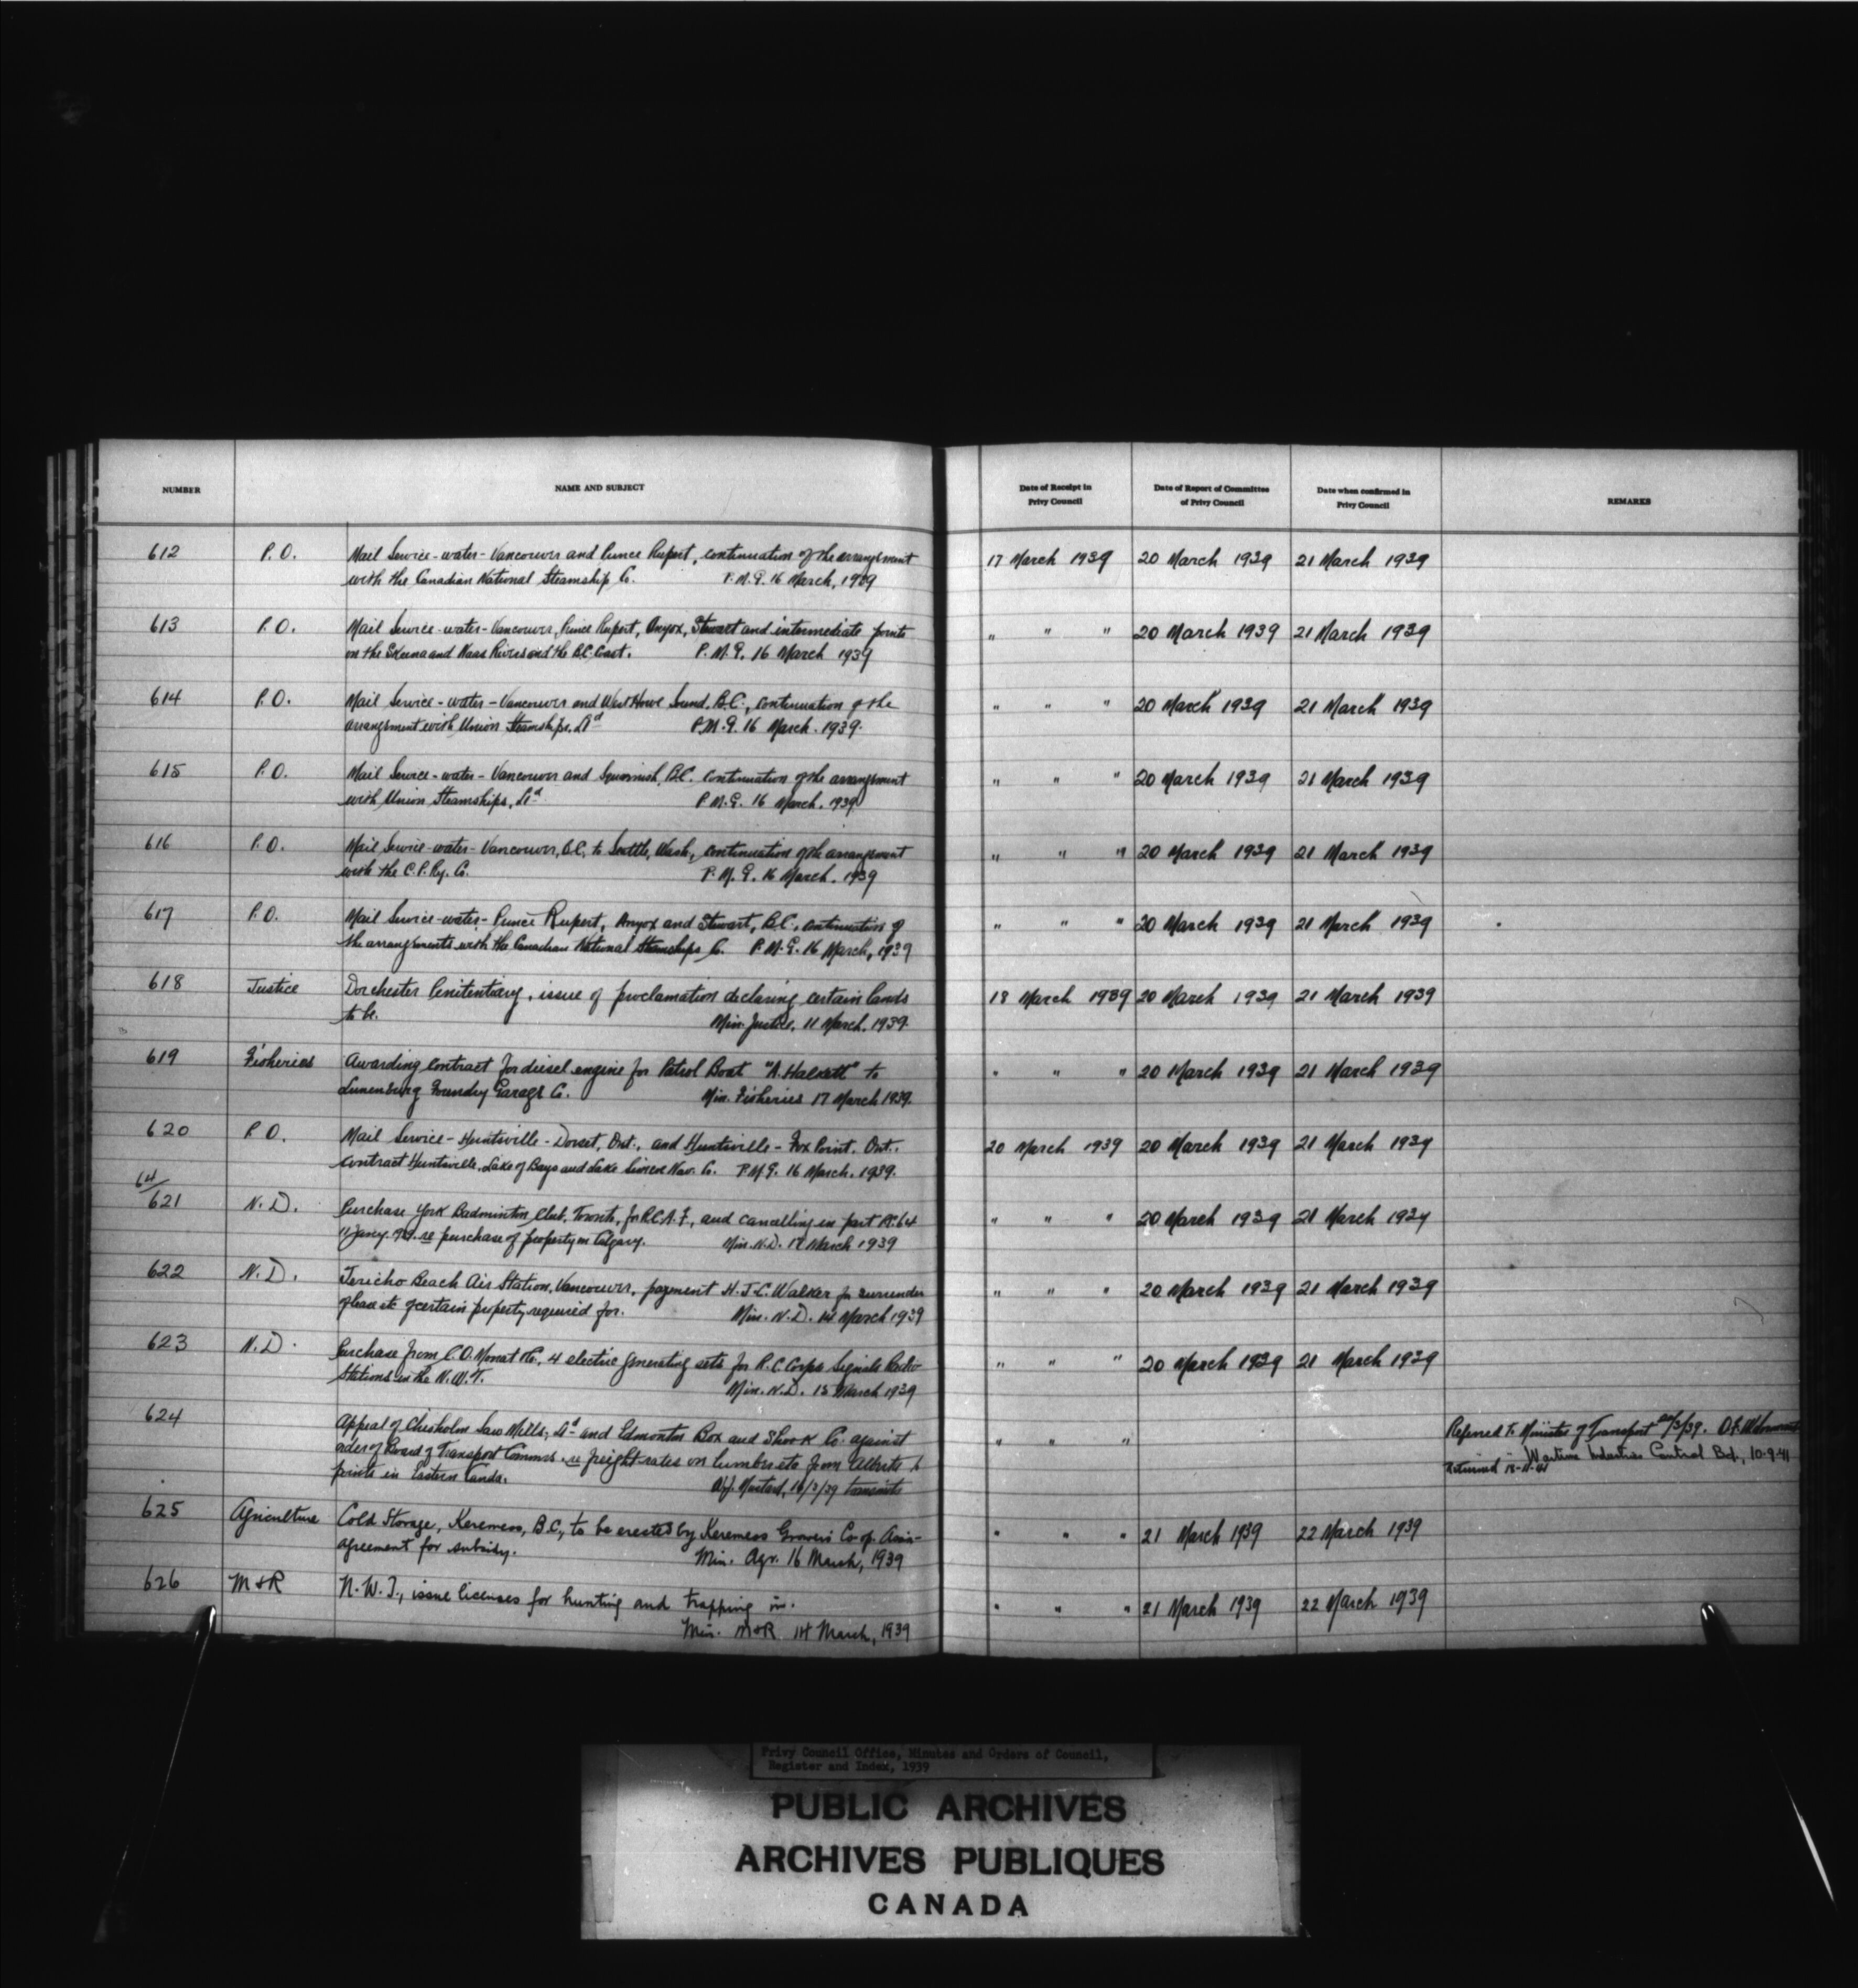 NUMBER NAME AND SUBJECT Date of Receipt in Privy Council Date of Report of Committee of Privy Council Date when confirmed in Privy Council REMARKS
612 P.O. Mail Service - water - Vancouver and Prince Rupert, continuation of the arrangement 17 March 1939 20 March 1939 21 March 1939
with the Canadian National Steamship Co. P.M.G. 16 March, 1939
613 P.O. Mail Service - water - Vancouver, Prince Rupert, Anyox, Stewart and intermediate points " " " 20 March 1939 21 March 1939
on the Skeena and Naas Rivers and the B.C. Coast. P.M.G. 16 March 1939
614 P.O. Mail Service - water - Vancouver and West Howe Sound, B.C., continuation of the " " " 20 March 1939 21 March 1939
arrangement with Union Steamships, Ltd P.M.G. 16 March. 1939.
615 P.O. Mail Service - water - Vancouver and Squamish, B.C. continuation of the arrangement " " " 20 March 1939 21 March 1939
with Union Steamships, Ltd. P.M.G. 16 March. 1939
616 P.O. Mail Service - water - Vancouver, B.C. to Seattle, Wash., continuation of the arrangement " " " 20 March 1939 21 March 1939
with the C.P. Ry. Co. P.M.G. 16 March. 1939
617 P.O. Mail Service - water - Prince Rupert, Anyox and Stewart, B.C., continuation of " " " 20 March 1939 21 March 1939
the arrangements with the Canadian National Steamships Co. P.M.G. 16 March, 1939
618 Justice Dorchester Penitentiary, issue of proclamation declaring certain lands 18 March 1939 20 March 1939 21 March 1939
to be. Min. Justice, 11 March, 1939.
619 Fisheries Awarding contract for diesel engine for Patrol Boat "A. Halkett" to " " " 20 March 1939 21 March 1939
Lunenburg Foundry Garage Co. Min. Fisheries 17 March 1939.
620 P.O. Mail Service - Huntsville - Dorset, Ont., and Huntsville - Fox Point, Ont., 20 March 1939 20 March 1939 21 March 1939
contract Huntsville, Lake of Bays and Lake Simcoe Nav. Co. P.M.G. 16 March. 1939.
64/
621 N.D. Purchase York Badminton Club, Toronto, for R.C.A.F., and cancelling in part P.C. 64 " " " 20 March 1939 21 March 1939
11 Jany. re purchase of property in Calgary. Min. N.D. 17 March 1939
622 N.D. Jericho Beach Air Station, Vancouver, payment H.J.C. Walker for surrender " " " 20 March 1939 21 March 1939
of lease etc of certain property required for. Min. N.D. 14 March 1939
623 N.D. Purchase from C.O. Monat &Co. 4 electric generating sets for R.C. Corps Signals Radio " " " 20 March 1939 21 March 1939
Stations in the N.W.T. Min. N.D. 15 March 1939
624 Appeal of Chisholm Saw Mills, Ltd and Edmonton Box and Shook Co. against " " " Referred to Minister of Transport
order of Board of Transport Commrs. re freight rates on lumber etc from Alberta to Wartime Industries Control Bd., 10-9-41
points in Eastern Canada. Returned
625 Agriculture Cold Storage, Keremeos, B.C., to be erected by Keremeos Growers Co-op. Assn - " " " 21 March 1939 22 March 1939
agreement for subsidy. Min. Agr. 16 March, 1939
626 M & R N.W.T., issue licenses for hunting and trapping in. " " " 21 March 1939 22 March 1939
Min. M & R 14 March, 1939
Privy Council Office, Minutes and Orders of Council,
Register and Index, 1939
PUBLIC ARCHIVES
ARCHIVES PUBLIQUES
CANADA